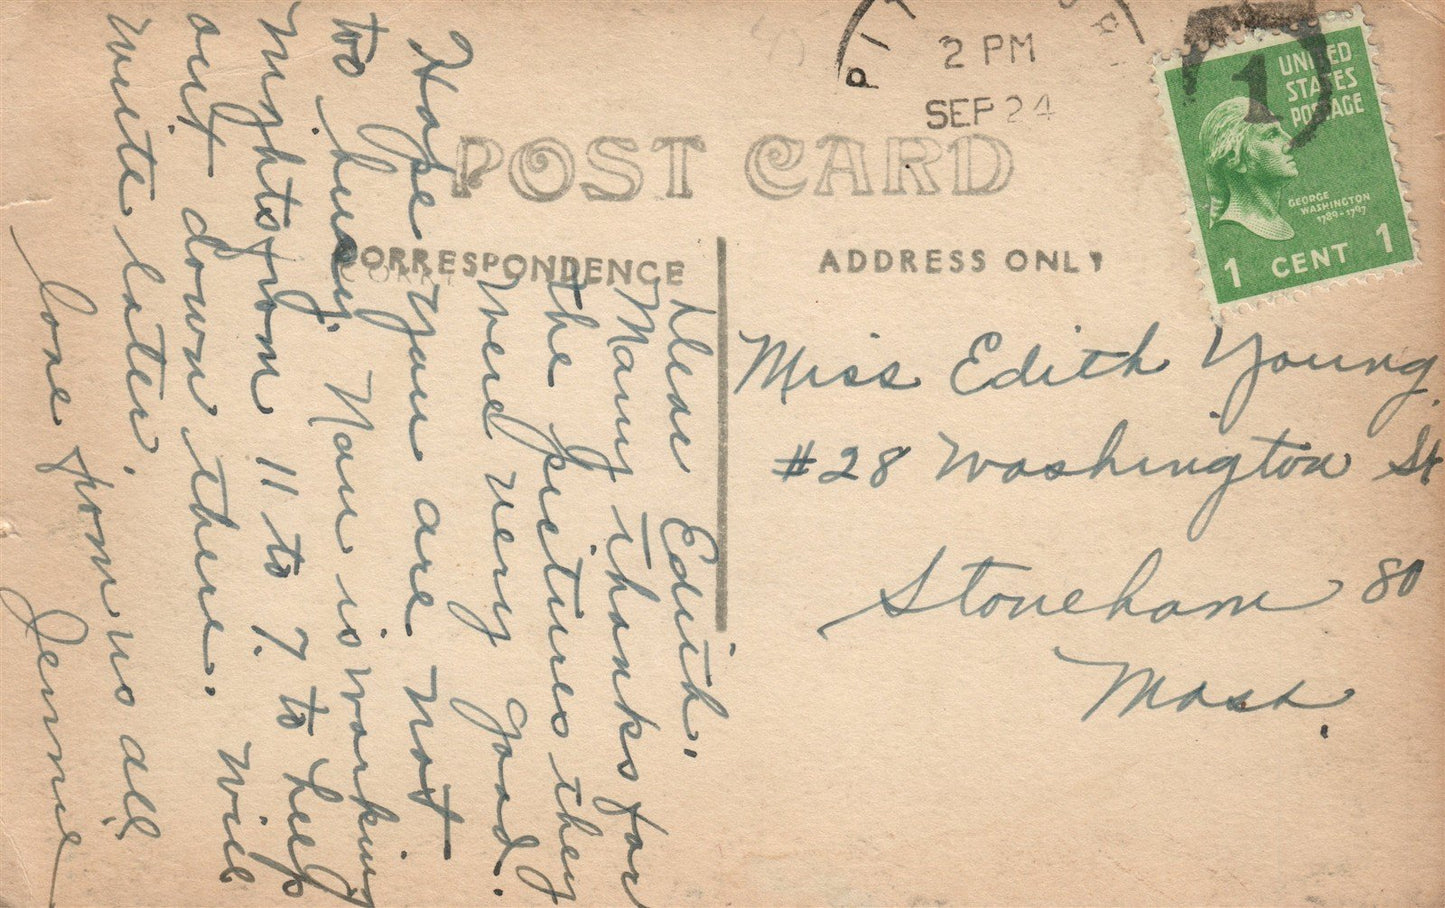 2 PM
SEP 24
UNITED
STATES
POSTAGE
1
GEORGE
WASHINGTON
1789-1797
1 CENT 1
POST CARD
CORRESPONDENCE
ADDRESS ONLY
Miss Edith Young
#28 Washington St
Stoneham 80
Mass.
Dear Edith.
Many thanks for
the pictures they
were very good.
Hope you are not
too busy. Nan is working
Nights from 11 to 7. to help
out down there. Will
write later.
love from us all
Jennie